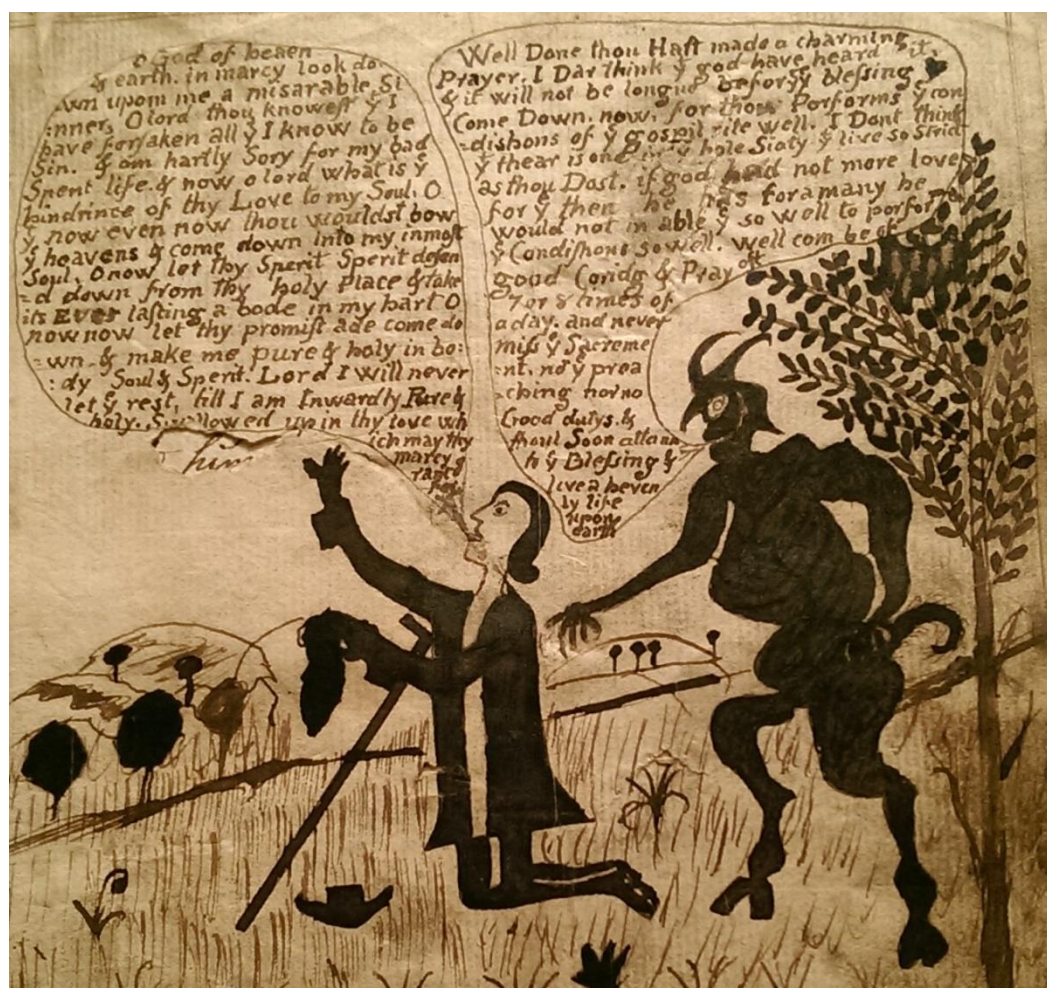 o God of heaen
& earth. in marcy look do
wn upom me a misarable Si
:nner, O lord thou knowest ẏ I
have forsaken all ẏ I know to be
Sin. & am hartly Sory for my bad
Spent life. & now o lord what is ẏ
hindrince of thy Love to my Soul. O
ẏ now even now thou wouldst bow
ẏ heavens & come down into my inmost
Soul, O now let thy Sperit Sperit desen
=d down from thy holy Place & take
its Ever lasting a bode in my hart O
now now let thy promist ade come do
:wn & make me pure & holy in bo:
:dy Soul & Sperit. Lord I will never
let ẏ rest, till I am Inwardly Pure &
holy. Swallowed up in thy love wh
ich may thy
marcy &
him
Well Done thou Hast made a charming
Prayer. I Dar think ẏ god have heard it,
& it will not be longue befor ẏ blessing
Come Down. now, for thou Porforms ẏ con
=dishons of ẏ gospil rite well. I Dont think
ẏ thear is one in ẏ hole Siaty ẏ live so Strict
as thou Dost. if god had not more love
for ẏ then he has for a many he
would not in able ẏ so well to porfor
ẏ Condishons so well. Well com be of
good Coridg & Pray oft
7 or 8 times of
a day. and never
miss ẏ Sacreme
:nt, nor ẏ prea
ching nor no
Good dutys. &
thoul Soon attann
ẏ Blessing &
live a heven
ly life
upon
earth